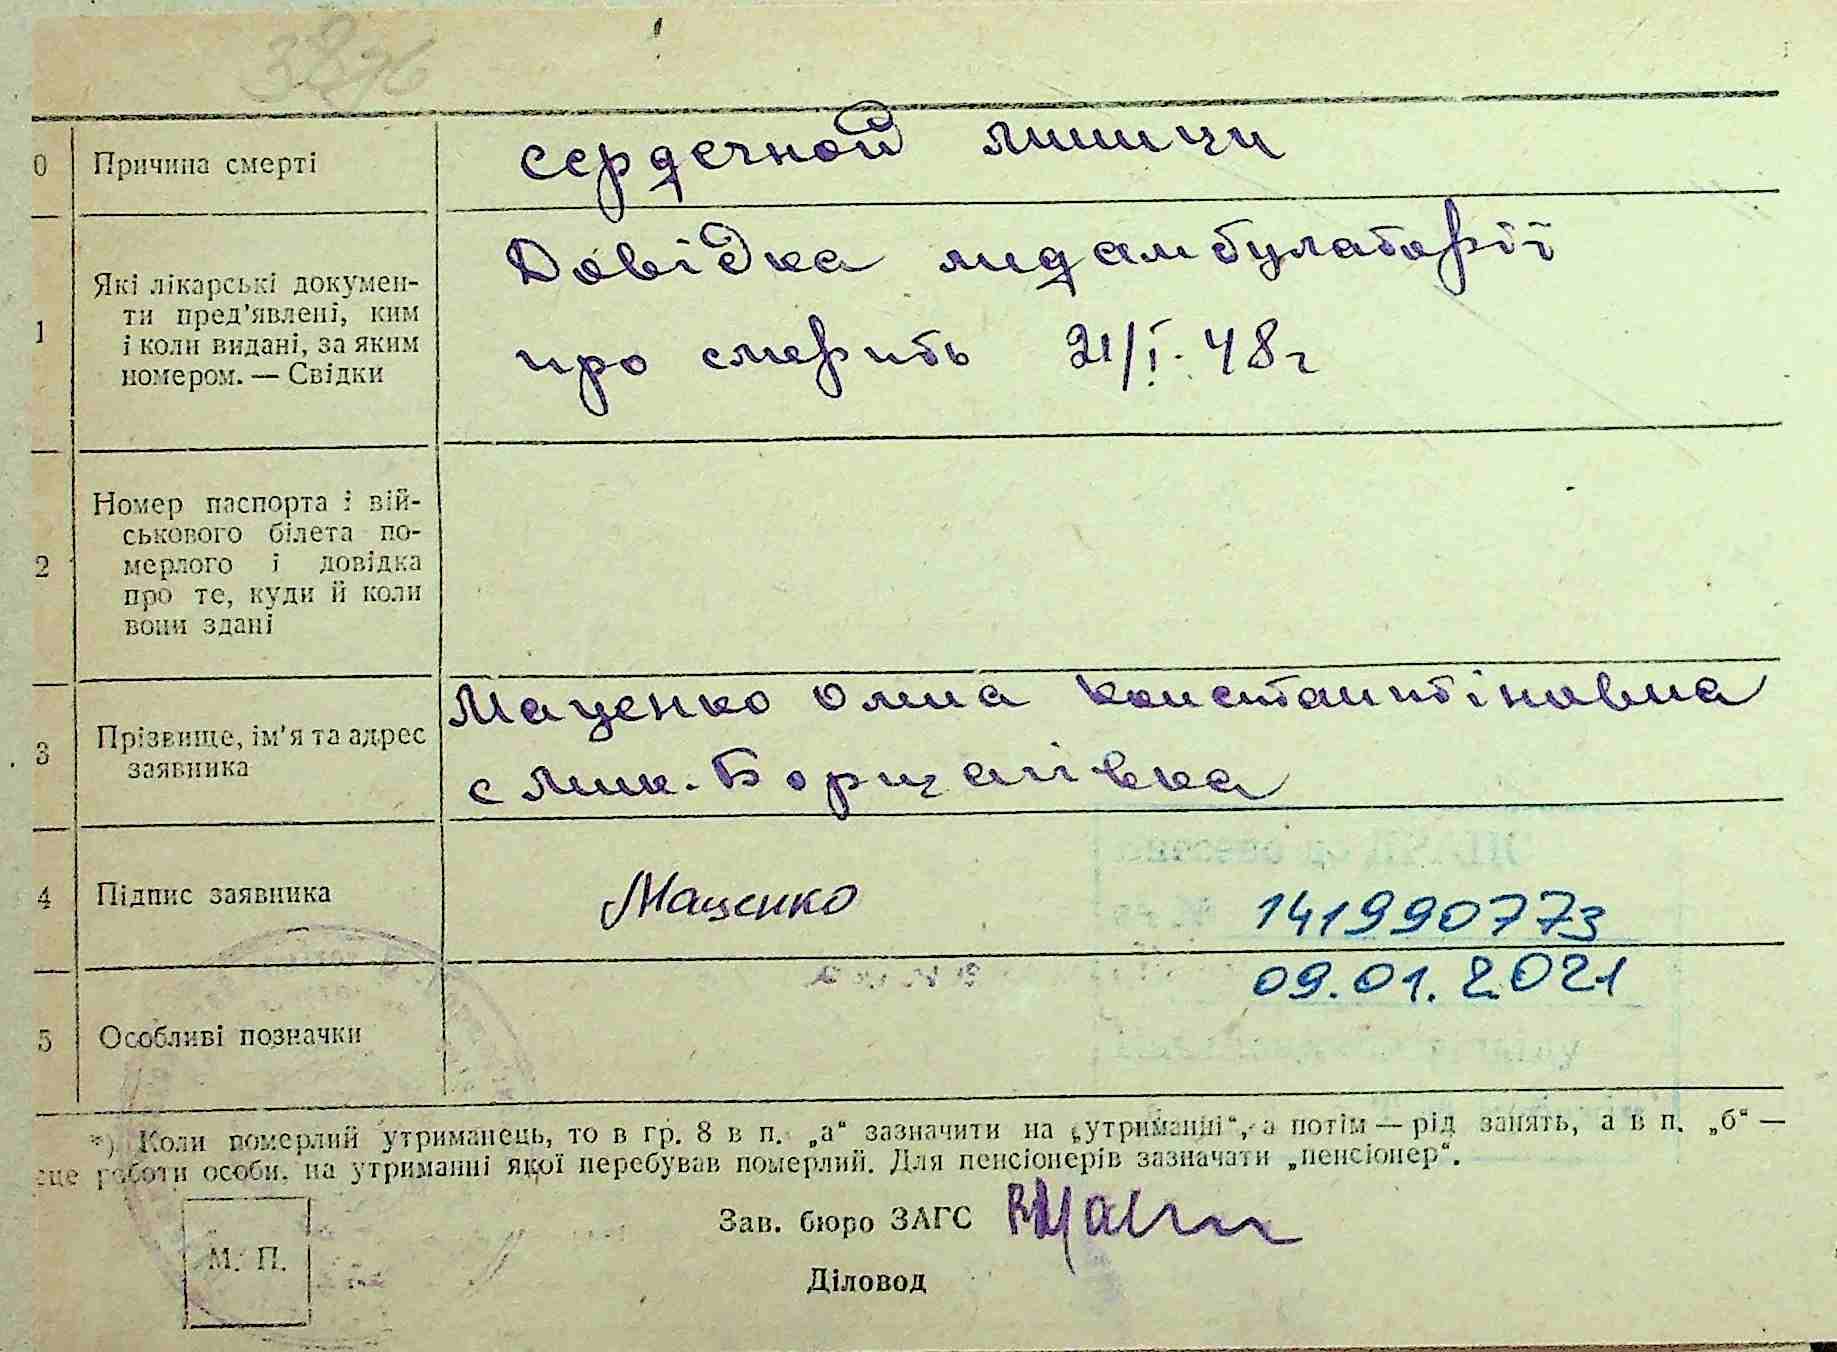 3876
0 Причина смерті
сердечной мишци
1 Які лікарські докумен-
ти пред'явлені, ким
і коли видані, за яким
номером. — Свідки
Довідка медамбулаторії
про смерть 21/I. 48 г
2 Номер паспорта і вій-
ськового білета по-
мерлого і довідка
про те, куди й коли
вони здані
3 Прізвище, ім'я та адрес
заявника
Маценко Олена Константіновна
с Мик. Борщагівка
4 Підпис заявника
Маценко
141990773
09.01.2021
5 Особливі позначки
*) Коли померлий утриманець, то в гр. 8 в п. „а“ зазначити на „утриманні“, а потім — рід занять, а в п. „б“ —
сце роботи особи, на утриманні якої перебував померлий. Для пенсіонерів зазначати „пенсіонер“.
М. П.
Зав. бюро ЗАГС
Діловод